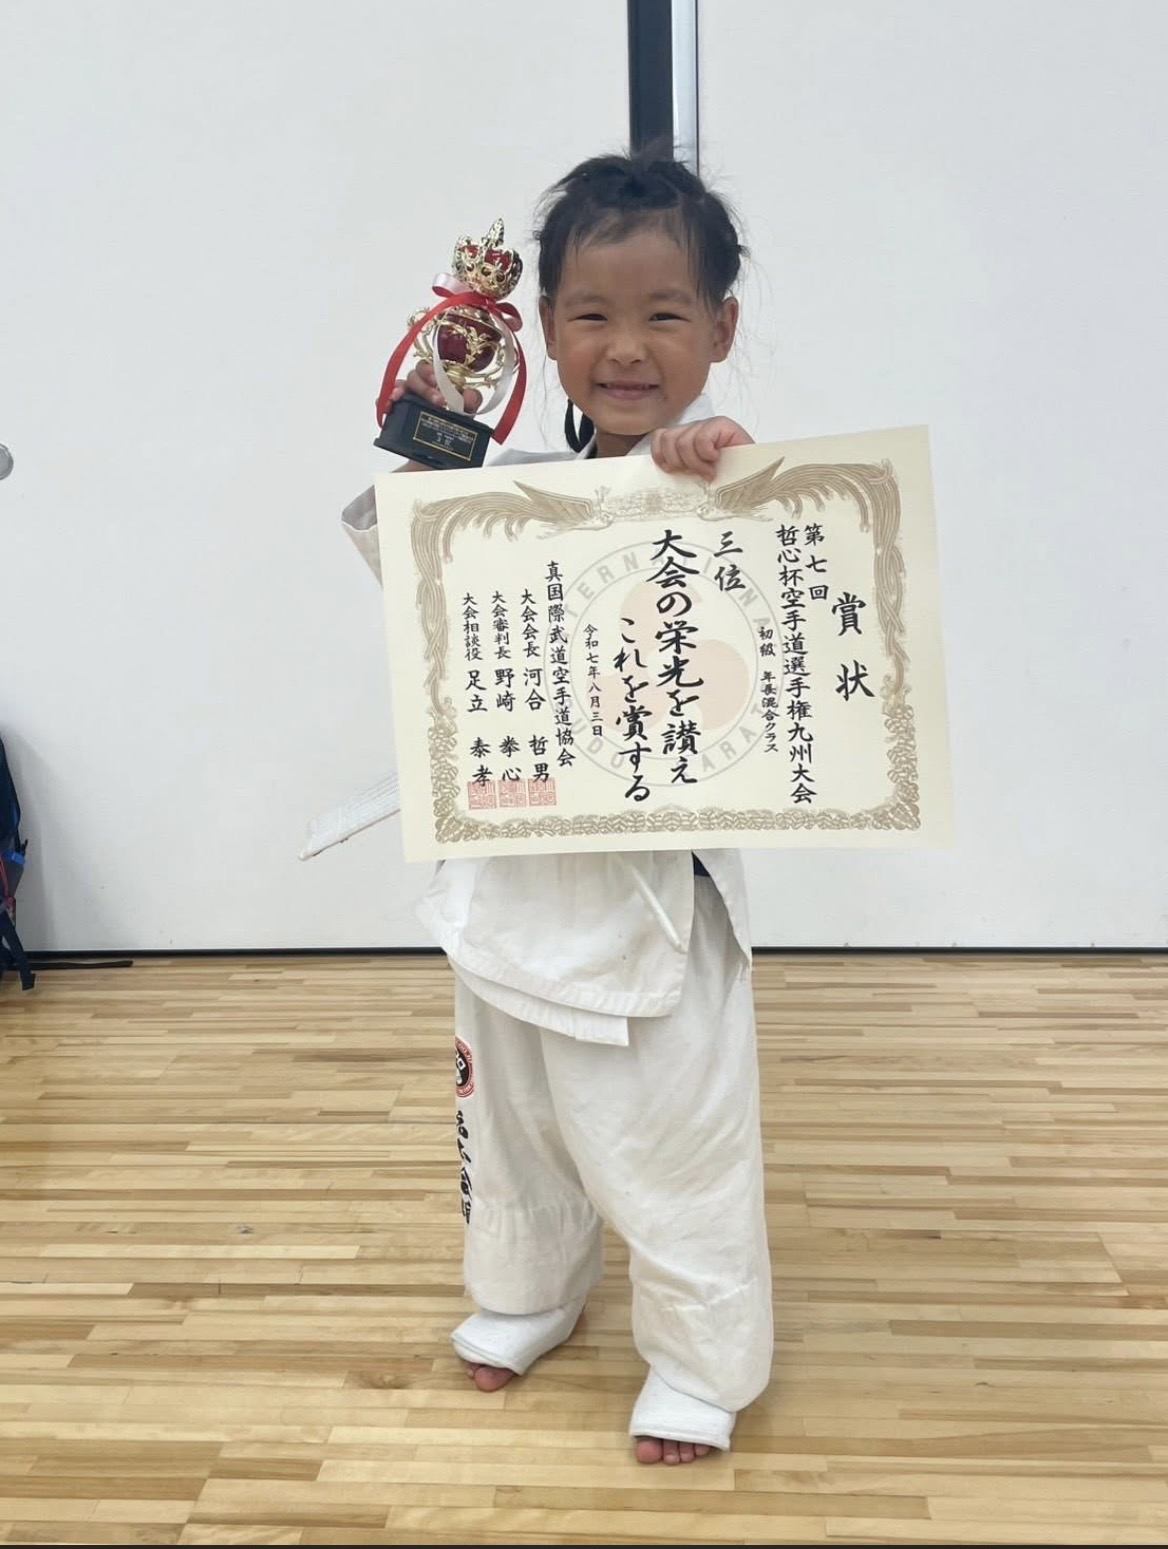 賞状
第七回
哲心杯空手道選手権九州大会
初級 年長混合クラス
三位
大会の栄光を讃え
これを賞する
令和七年八月三日
真国際武道空手道協会
大会会長 河合 哲男
大会審判長 野崎 拳心
大会相談役 足立 泰孝